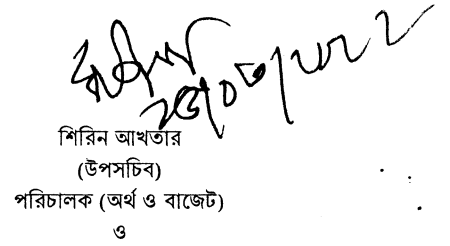 শিরিন আখতার
(উপসচিব)
পরিচালক (অর্থ ও বাজেট)
ও